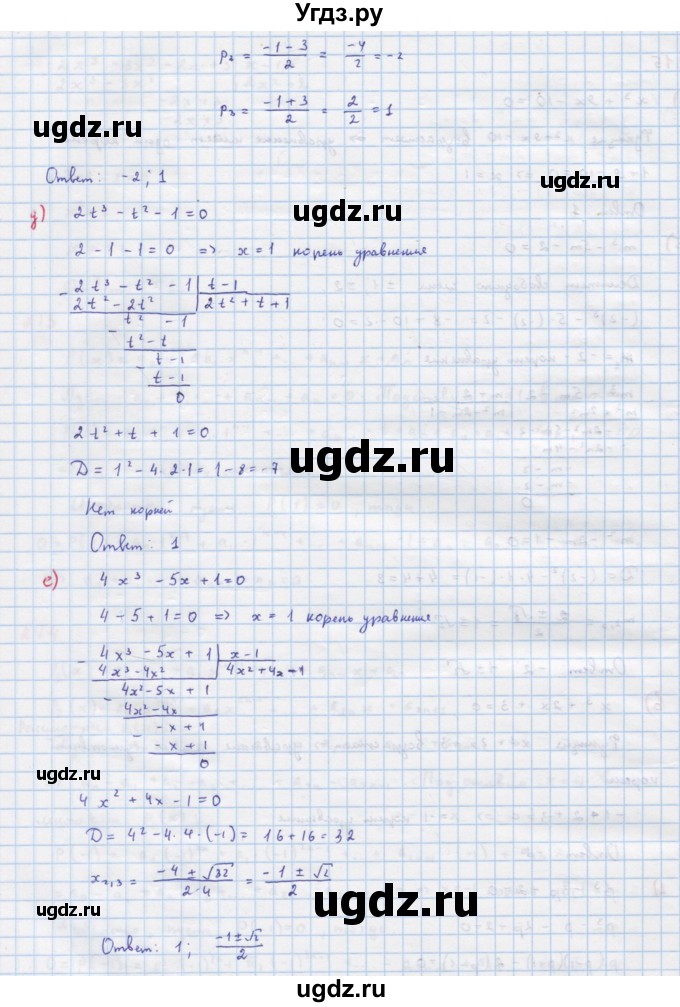 Угдз.ру
p₂ = (-1-3)/2 = -4/2 = -2
p₃ = (-1+3)/2 = 2/2 = 1
ugdz.ru
ugdz.ru
ugdz.ru
Ответ: -2; 1
д) 2t³ - t² - 1 = 0
2 - 1 - 1 = 0 => x = 1 корень уравнения
- 2t³ - t² - 1 | t - 1
2t² - 2t² | 2t² + t + 1
- t² - 1
t² - t
- t - 1
t - 1
0
2t² + t + 1 = 0
ugdz.ru
D = 1² - 4·2·1 = 1 - 8 = -7
Нет корней
Ответ: 1
ugdz.ru
е) 4x³ - 5x + 1 = 0
4 - 5 + 1 = 0 => x = 1 корень уравнения
- 4x³ - 5x + 1 | x - 1
4x³ - 4x² | 4x² + 4x - 1
ugdz.ru
- 4x² - 5x + 1
4x² - 4x
- -x + 1
-x + 1
0
ugdz.ru
4x² + 4x - 1 = 0
D = 4² - 4·4·(-1) = 16 + 16 = 32
x₂,₃ = (-4 ± √32)/(2·4) = (-1 ± √2)/2
ugdz.ru
ugdz.ru
Ответ: 1; (-1±√2)/2
ugdz.ru